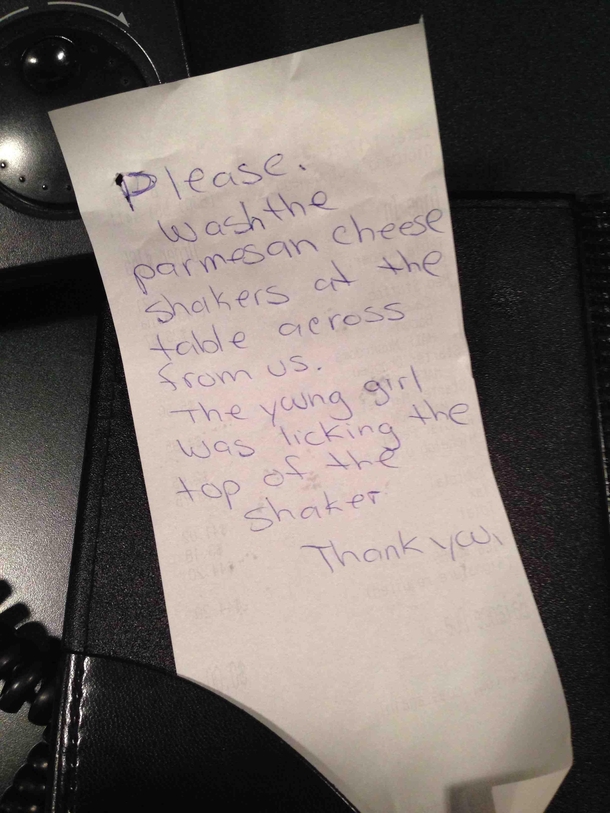 Please.
Wash the
parmesan cheese
shakers at the
table across
from us.
The young girl
was licking the
top of the
shaker
Thank you,